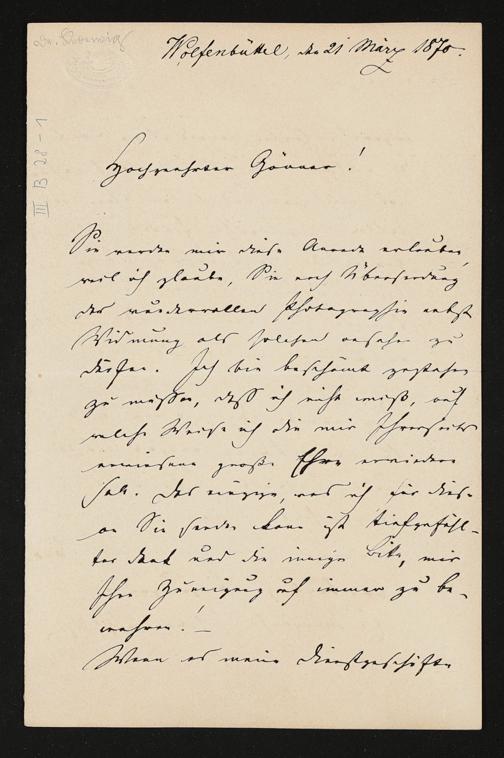 Wolfenbüttel, den 21 März 1870.
III B 28-1
Hochgeehrter Gönner!
Sie werden mir diese Anrede erlauben,
weil ich glaube, Sie nach Übersendung
der wundervollen Photographie nebst
Widmung als solchen ansehen zu
dürfen. Ich bin beschämt gestehen
zu müssen, daß ich nicht weiß, auf
welche Weise ich die mir Ihrerseits
erwiesene große Ehre erwiedern
soll. Das einzige, was ich für diese
an Sie senden kann ist tiefgefühl-
ter Dank und die innige Bitte, mir
Ihre Zuneigung auf immer zu be-
wahren. —
Wenn es meine Dienstgeschäfte